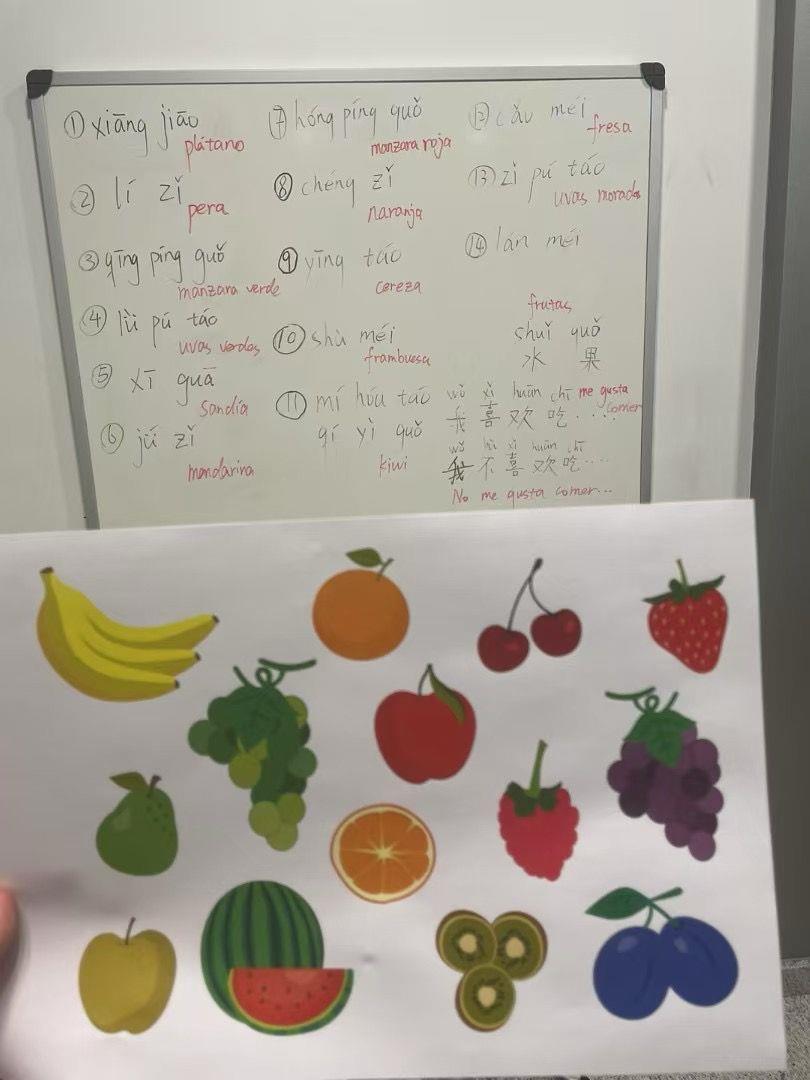 ① xiāng jiāo
plátano
② lí zǐ
pera
③ qīng píng guǒ
manzara verde
④ lǜ pú táo
uvas verdes
⑤ xī guā
Sandía
⑥ jú zǐ
mandarina
⑦ hóng píng guǒ
manzara roja
⑧ chéng zǐ
naranja
⑨ yīng táo
cereza
⑩ shù méi
frambuesa
⑪ mí hóu táo
qí yì guǒ
kiwi
⑫ cǎo méi
fresa
⑬ zǐ pú táo
uvas moradas
⑭ lán méi
frutas
shuǐ guǒ
水 果
wǒ xǐ huān chī me gusta
我 喜 欢 吃 ..... comer
wǒ bù xǐ huān chī
我 不 喜 欢 吃 ....
No me gusta comer...